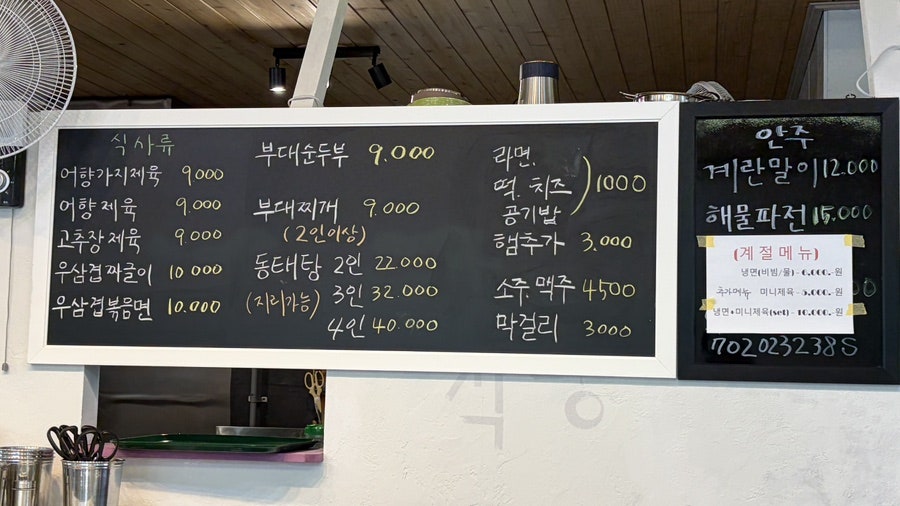 식사류
어향가지제육 9,000
어향제육 9.000
고추장제육 9.000
우삼겹짜글이 10.000
우삼겹볶음면 10.000
부대순두부 9.000
부대찌개 9.000
(2인이상)
동태탕 2인 22.000
(지리가능) 3인 32.000
4인 40.000
라면.
떡. 치즈 ) 1000
공기밥
햄추가 3.000
소주.맥주 4500
막걸리 3000
안주
계란말이 12.000
해물파전 15.000
(계절메뉴)
냉면(비빔/물) - 6,000.-원
추가메뉴 미니제육 - 5,000.-원
냉면+미니제육(set) - 10,000.-원
702023238S
식당